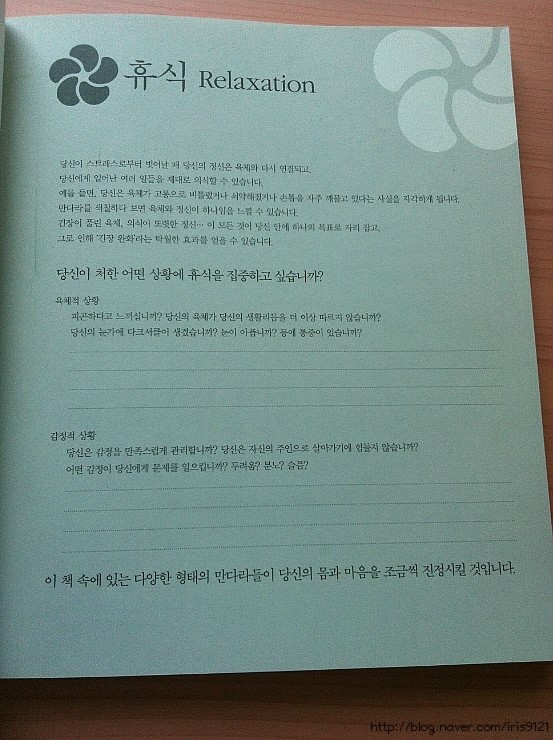 휴식 Relaxation
당신이 스트레스로부터 벗어날 때 당신의 정신은 육체와 다시 연결되고,
당신에게 일어난 여러 일들을 제대로 의식할 수 있습니다.
예를 들면, 당신은 육체가 고통으로 비틀렸거나 쇠약해졌거나 손톱을 자주 깨물고 있다는 사실을 지각하게 됩니다.
만다라를 색칠하다 보면 육체와 정신이 하나임을 느낄 수 있습니다.
긴장이 풀린 육체, 의식이 또렷한 정신… 이 모든 것이 당신 안에 하나의 목표로 자리 잡고,
그로 인해 '긴장 완화'라는 탁월한 효과를 얻을 수 있습니다.
당신이 처한 어떤 상황에 휴식을 집중하고 싶습니까?
육체적 상황
피곤하다고 느끼십니까? 당신의 육체가 당신의 생활리듬을 더 이상 따르지 않습니까?
당신의 눈가에 다크서클이 생겼습니까? 눈이 아픕니까? 등에 통증이 있습니까?
감정적 상황
당신은 감정을 만족스럽게 관리합니까? 당신은 자신의 주인으로 살아가기에 힘들지 않습니까?
어떤 감정이 당신에게 문제를 일으킵니까? 두려움? 분노? 슬픔?
이 책 속에 있는 다양한 형태의 만다라들이 당신의 몸과 마음을 조금씩 진정시킬 것입니다.
http://blog.naver.com/iris9121